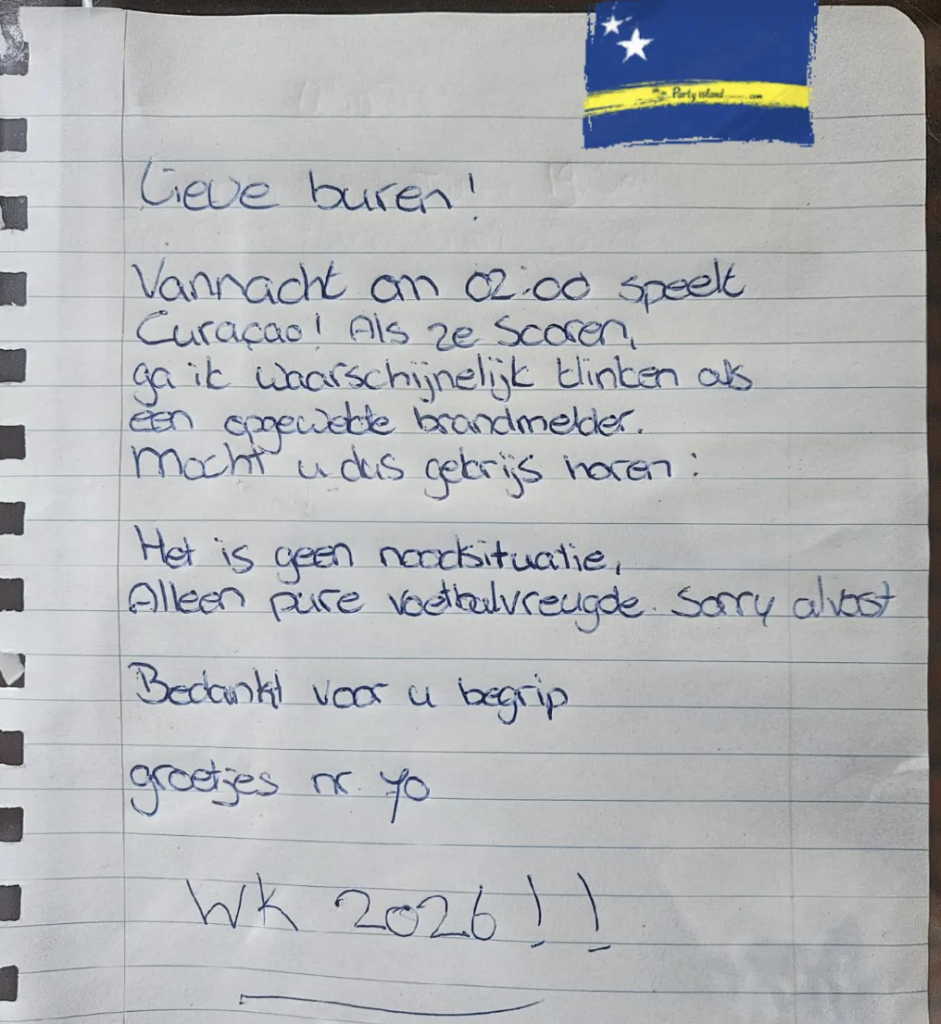 Party island
.com
Lieve buren!
Vannacht om 02:00 speelt
Curaçao! Als ze scoren,
ga ik waarschijnelijk klinken als
een opgewekte brandmelder.
Mocht u dus gekrijs horen:
Het is geen noodsituatie,
Alleen pure voetbalvreugde. Sorry alvast
Bedankt voor u begrip
groetjes nr. 70
WK 2026!!